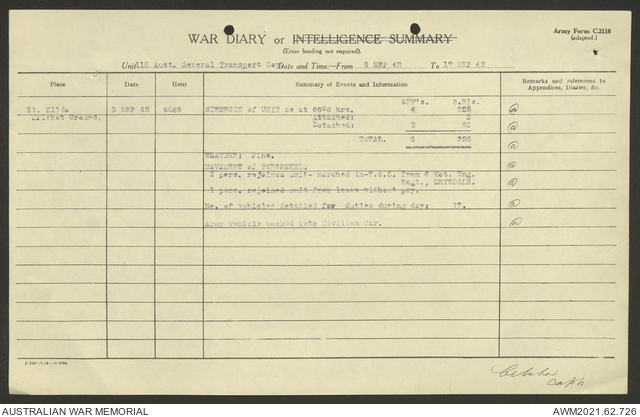 WAR DIARY or INTELLIGENCE SUMMARY
(Erase heading not required).
Army Form C.2118
(adapted.)
Unit 118 Aust. General Transport Coy. Date and Time.—From 6 SEP 42 To 12 SEP 42
Place Date Hour Summary of Events and Information Remarks and references to
Appendices, Diaries, &c.
OFF's. O.R's.
St. Kilda 6 SEP 42 0600 STRENGTH of UNIT as at 0600 hrs. 4
Cricket Ground. Attached: 3
Detached:
TOTAL. 6 326
WEATHER: Fine.
MOVEMENT of PERSONNEL:
2 pers. rejoined unit- marched in T.O.S. from 6 Mot. Tng.
Regt., DRYSDALE.
1 pers. rejoined unit from leave without pay.
No. of vehicles detailed for duties during day: 73.
Army vehicle backed into Civilian Car.
Capt
AUSTRALIAN WAR MEMORIAL AWM2021.62.726